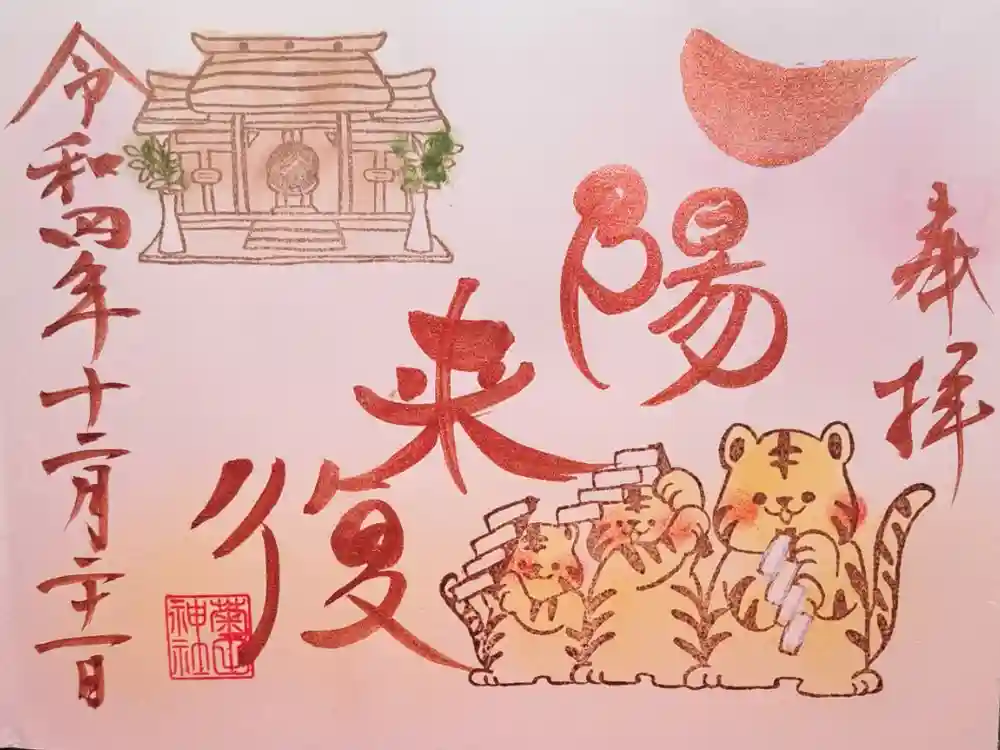 奉拝
一陽来復
令和四年十二月二十二日
菊田神社